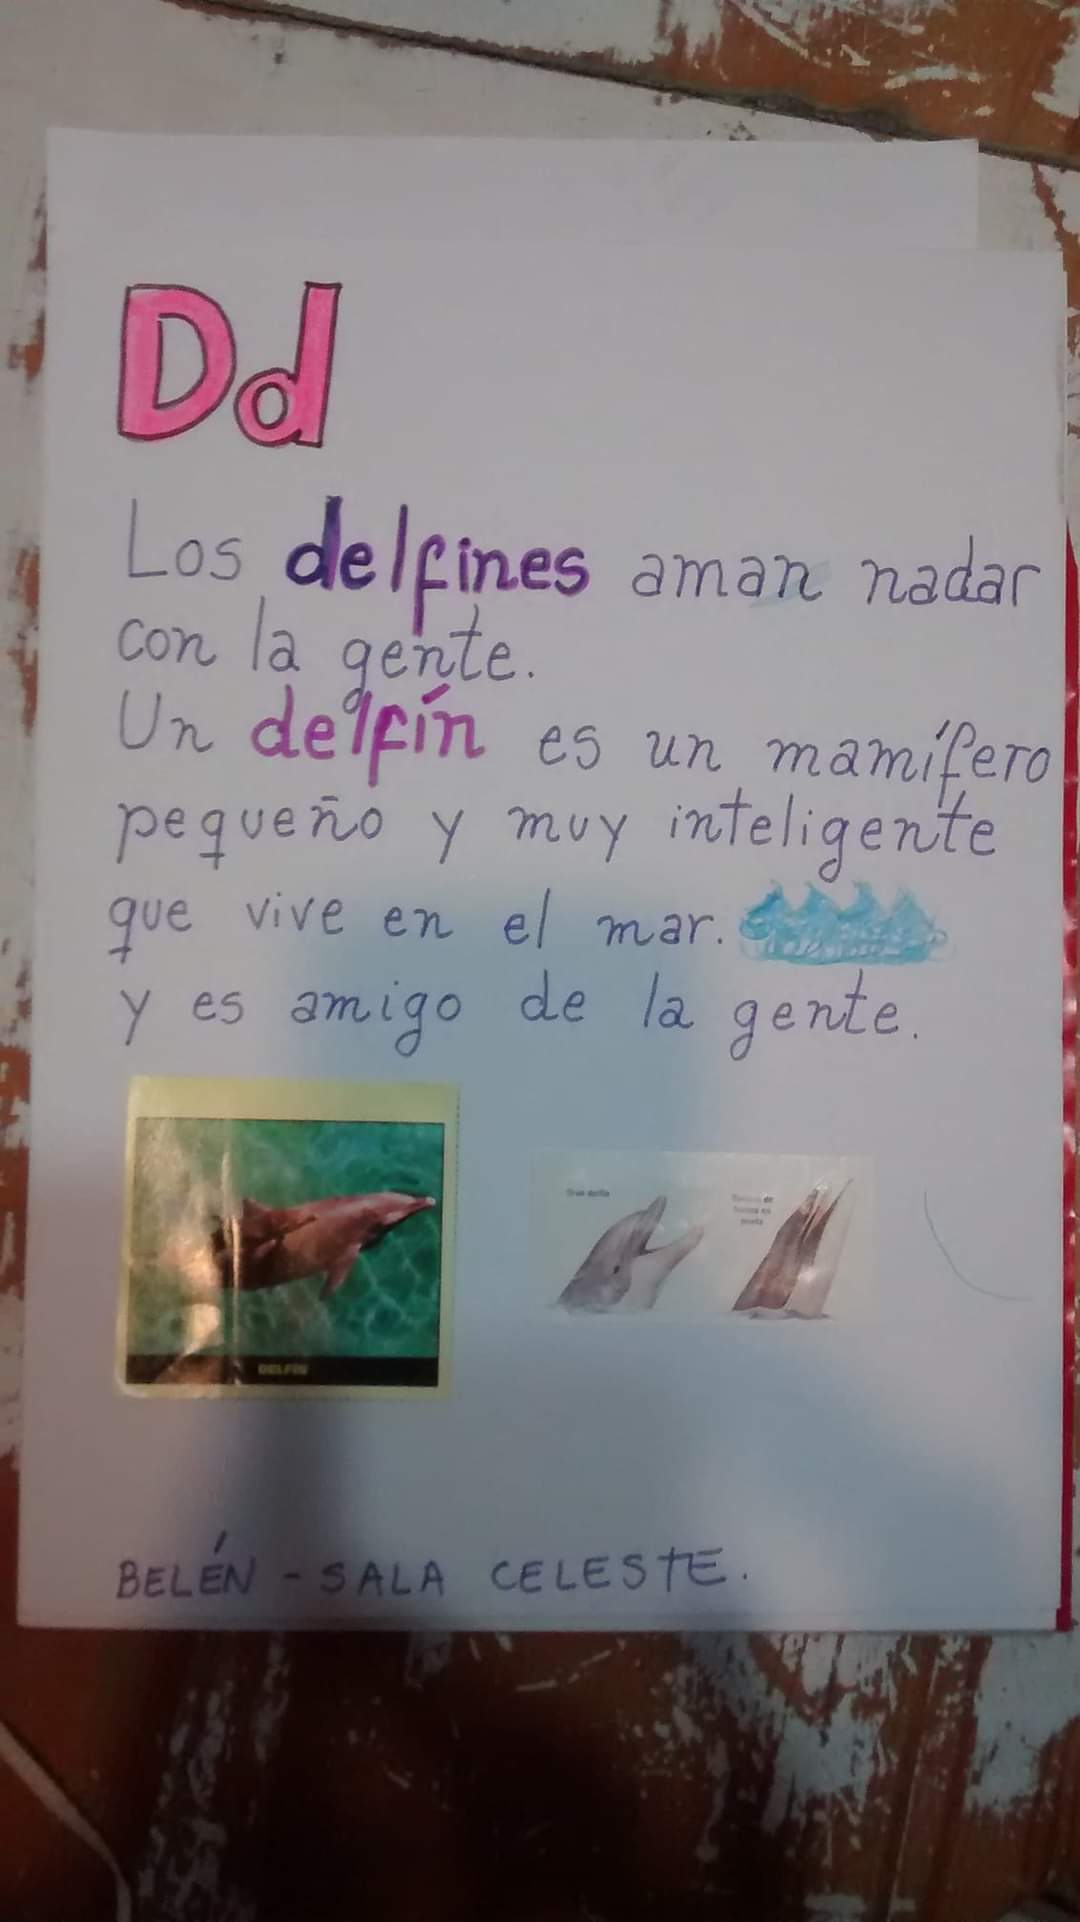 Dd
Los delfines aman nadar
con la gente.
Un delfín es un mamífero
pequeño y muy inteligente
que vive en el mar.
y es amigo de la gente.
DELFÍN
BELÉN - SALA CELESTE.